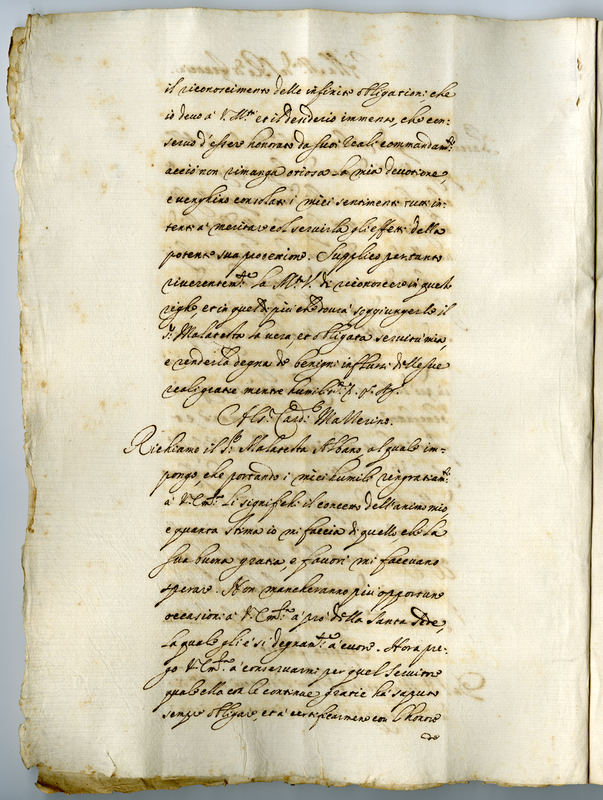 il riconoscimento delle infinite obligationi che
io devo à V. M.tà et il desiderio immenso, che con-
servo d'esser honorato da suoi reali commandam.ti
acciò non rimanga otiosa la mia devotione,
e venghino consolati i miei sentimenti tutti in-
tenti à meritar col servirla gl'effetti della
potente sua protettione. Supplico pertanto
riverentem.te la M.tà V. di riconoscer in queste
righe et in quel di più che dourà soggiungerle il
S.r Malatesta la vera et obligata servitù mia,
e renderla degna de benigni influssi delle sue
reali gratie mentre humilm.te
Al S.r Card.l Mazzerino.
Richiamo il S.r Malatesta Albano, al quale im-
pongo, che portando i miei humili ringratiam.ti
à V. Em.za li significhi il concetto dell'animo mio
e quanta stima io mi faccia di quello, che la
sua buona gratia, e favori mi facevano
sperare. Non mancheranno più opportune
occasioni à V. Em.za à prò della Santa Sede,
la quale gli è sì degnam.te à cuore. Hora pre-
go V. Em.za à conservarmi per quel servitore
quale ella con le continue gratie hà saputo
sempre obligare, et à certificarmene con l'honore
de